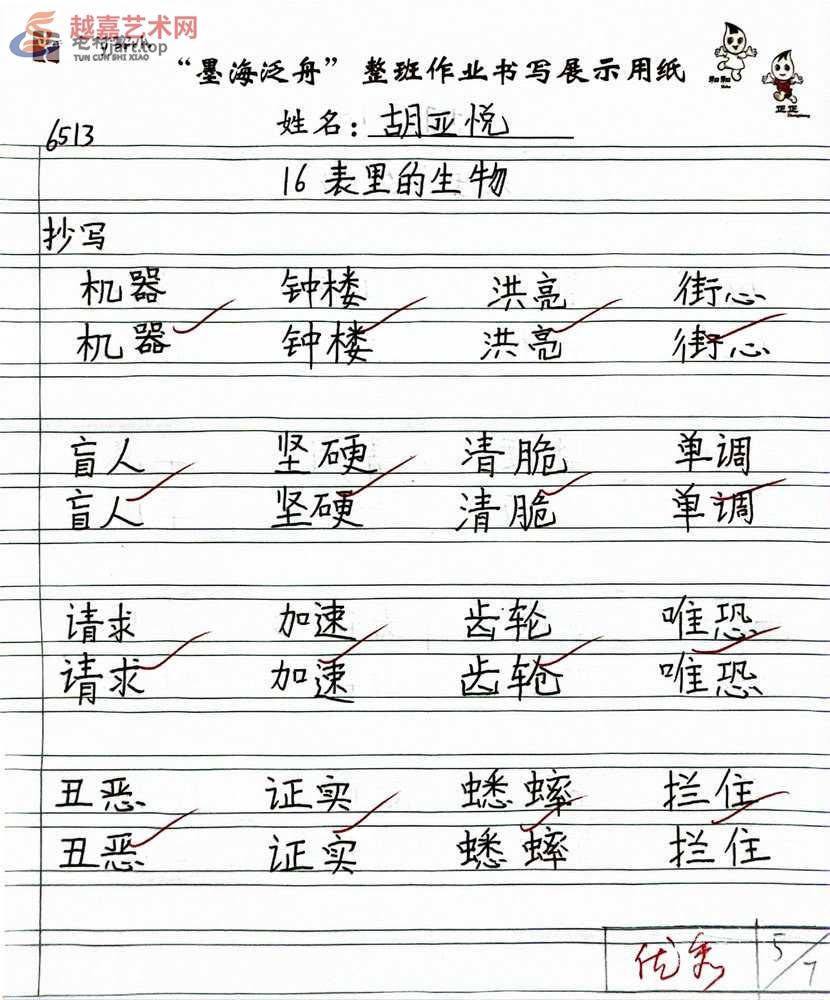 越嘉艺术网
yjart.top
TUN CUN SHI XIAO
“墨海泛舟”整班作业书写展示用纸
和和
正正
6513
姓名：胡亚悦
16 表里的生物
抄写
机器 钟楼 洪亮 街心
机器 钟楼 洪亮 街心
盲人 坚硬 清脆 单调
盲人 坚硬 清脆 单调
请求 加速 齿轮 唯恐
请求 加速 齿轮 唯恐
丑恶 证实 蟋蟀 拦住
丑恶 证实 蟋蟀 拦住
优秀 5/7